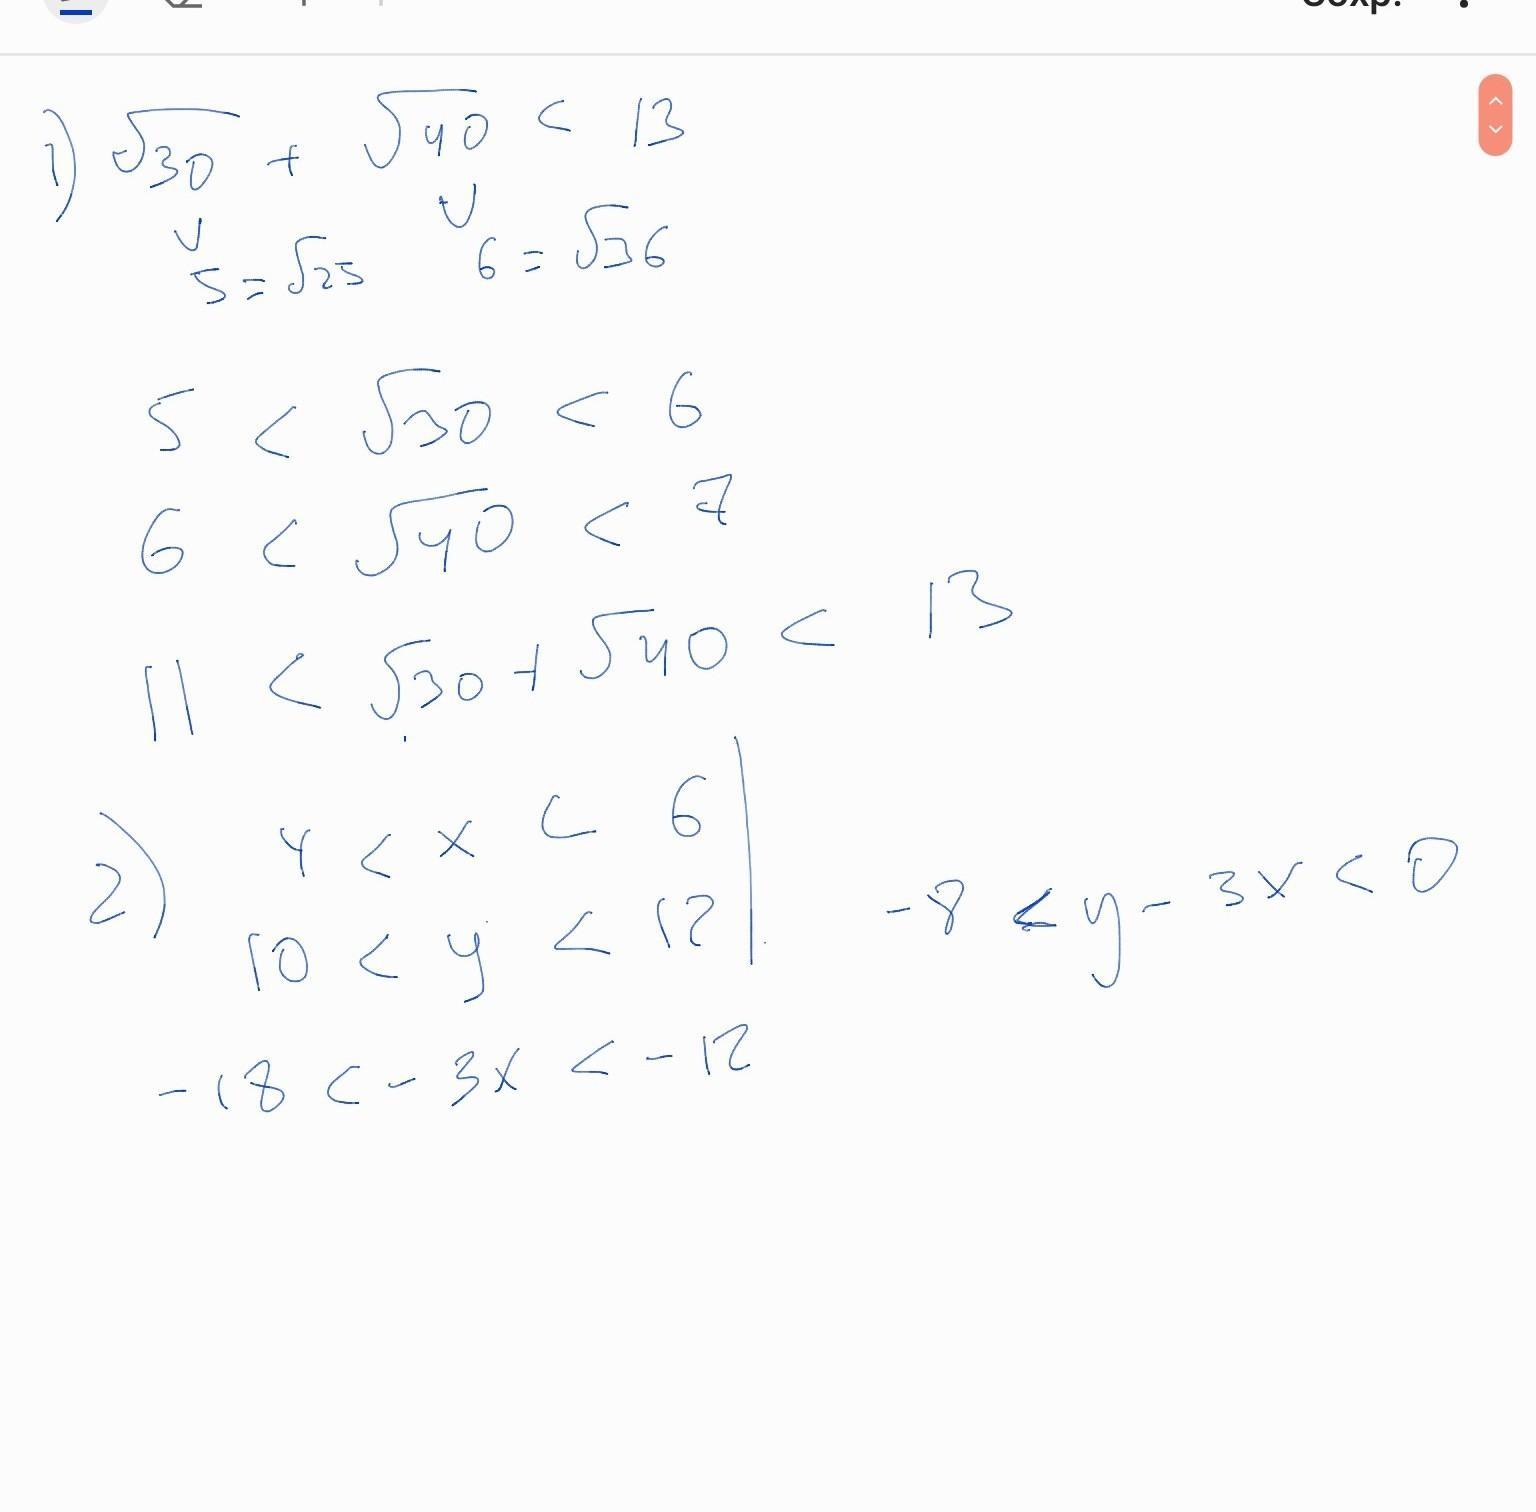 1) √30 + √40 < 13
5 = √25 6 = √36
5 < √30 < 6
6 < √40 < 7
11 < √30 + √40 < 13
2) 4 < x < 6
10 < y < 12
-8 < y - 3x < 0
-18 < -3x < -12